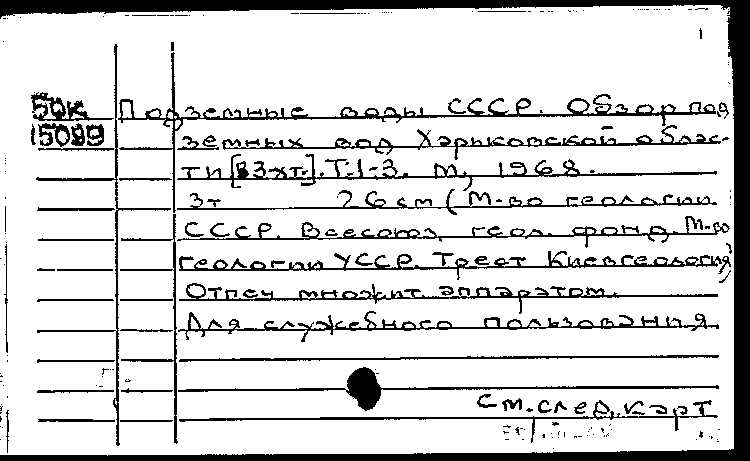 1
50к Подземные воды СССР. Обзор под
15099 земных вод Харьковской облас-
ти [в 3-хт.]. Т.1-3. М, 1968.
3т 26 см (М-во геологии
СССР. Всесоюз. геол. фонд. М-во
геологии УССР. Трест Киевгеология)
Отпеч множит. аппаратом.
Для служебного пользования.
см. след. карт